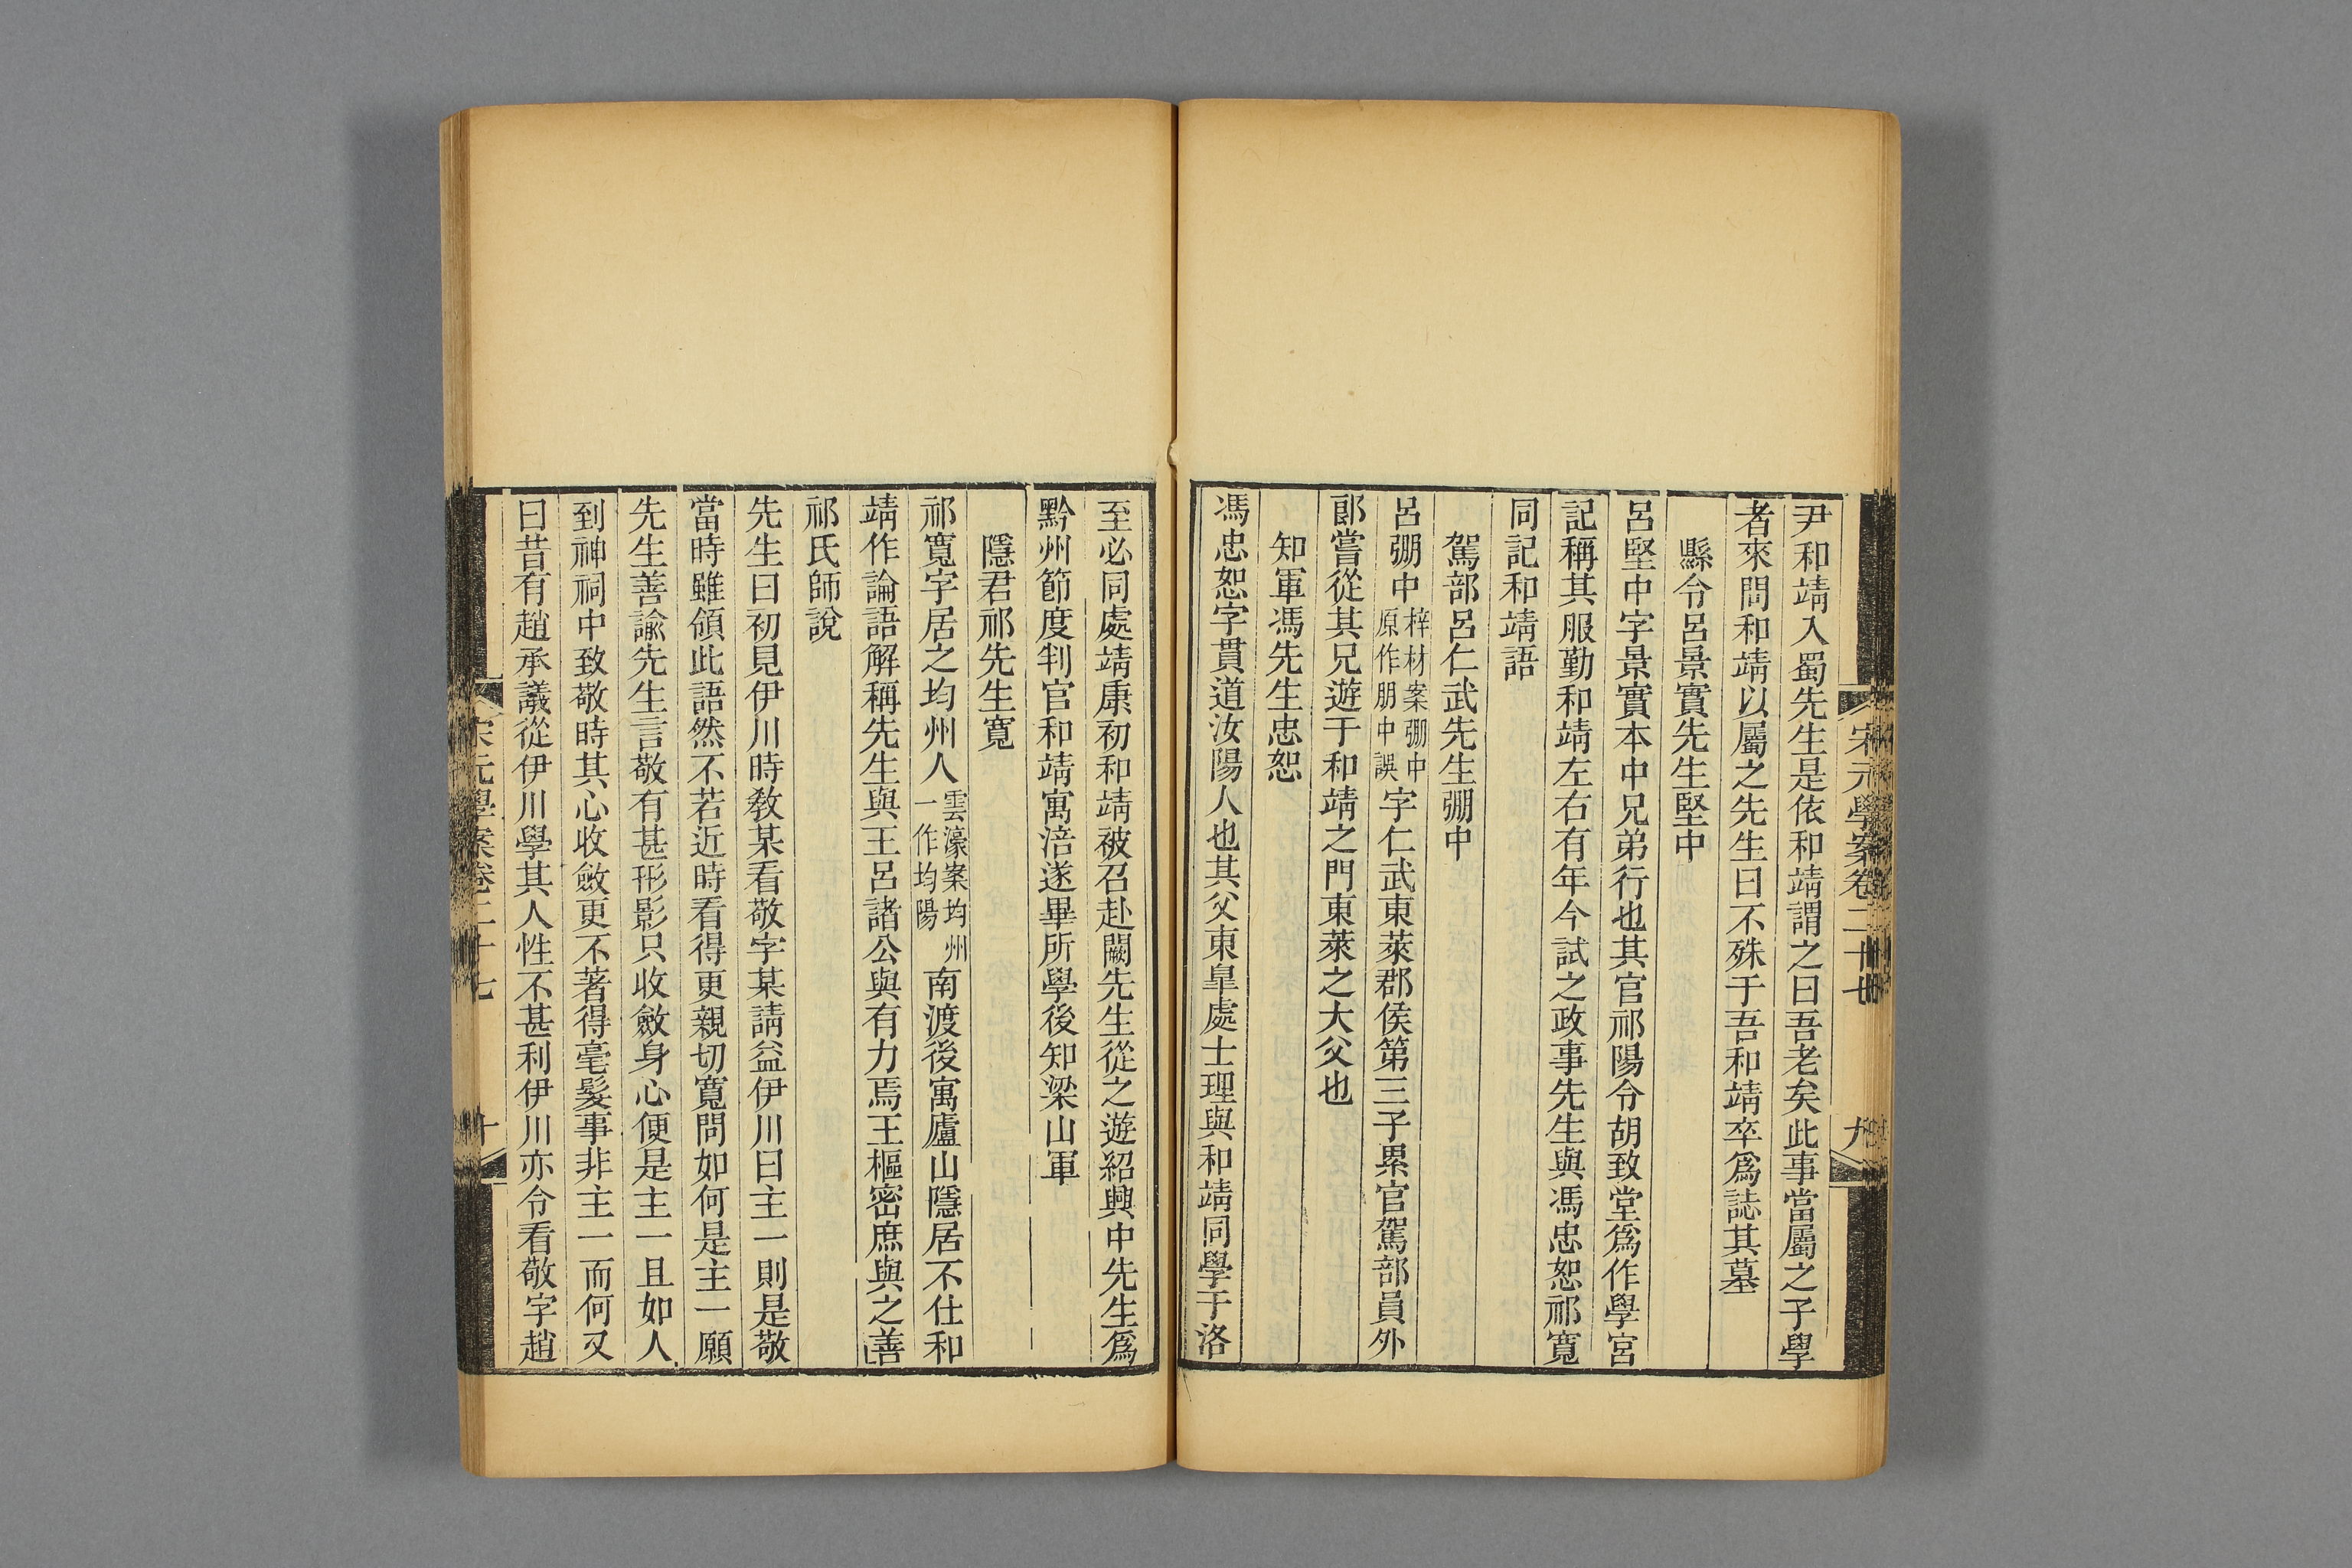 宋元學案卷二十七
九
尹和靖入蜀先生是依和靖謂之曰吾老矣此事當屬之子學
者來問和靖以屬之先生曰不殊于吾和靖卒爲誌其墓
縣令呂景實先生堅中
呂堅中字景實本中兄弟行也其官祁陽令胡致堂爲作學宮
記稱其服勤和靖左右有年今試之政事先生與馮忠恕祁寬
同記和靖語
駕部呂仁武先生弸中
呂弸中梓材案弸中原作朋中誤字仁武東萊郡侯第三子累官駕部員外
郞嘗從其兄遊于和靖之門東萊之大父也
知軍馮先生忠恕
馮忠恕字貫道汝陽人也其父東皐處士理與和靖同學于洛
至必同處靖康初和靖被召赴闕先生從之遊紹興中先生爲
黔州節度判官和靖寓涪遂畢所學後知梁山軍
隱君祁先生寬
祁寬字居之均州人雲濠案均州一作均陽南渡後寓廬山隱居不仕和
靖作論語解稱先生與王呂諸公與有力焉王樞密庶與之善
祁氏師說
先生曰初見伊川時敎某看敬字某請益伊川曰主一則是敬
當時雖領此語然不若近時看得更親切寬問如何是主一願
先生善諭先生言敬有甚形影只收斂身心便是主一且如人
到神祠中致敬時其心收斂更不著得毫髮事非主一而何又
曰昔有趙承議從伊川學其人性不甚利伊川亦令看敬字趙
宋元學案卷二十七
十